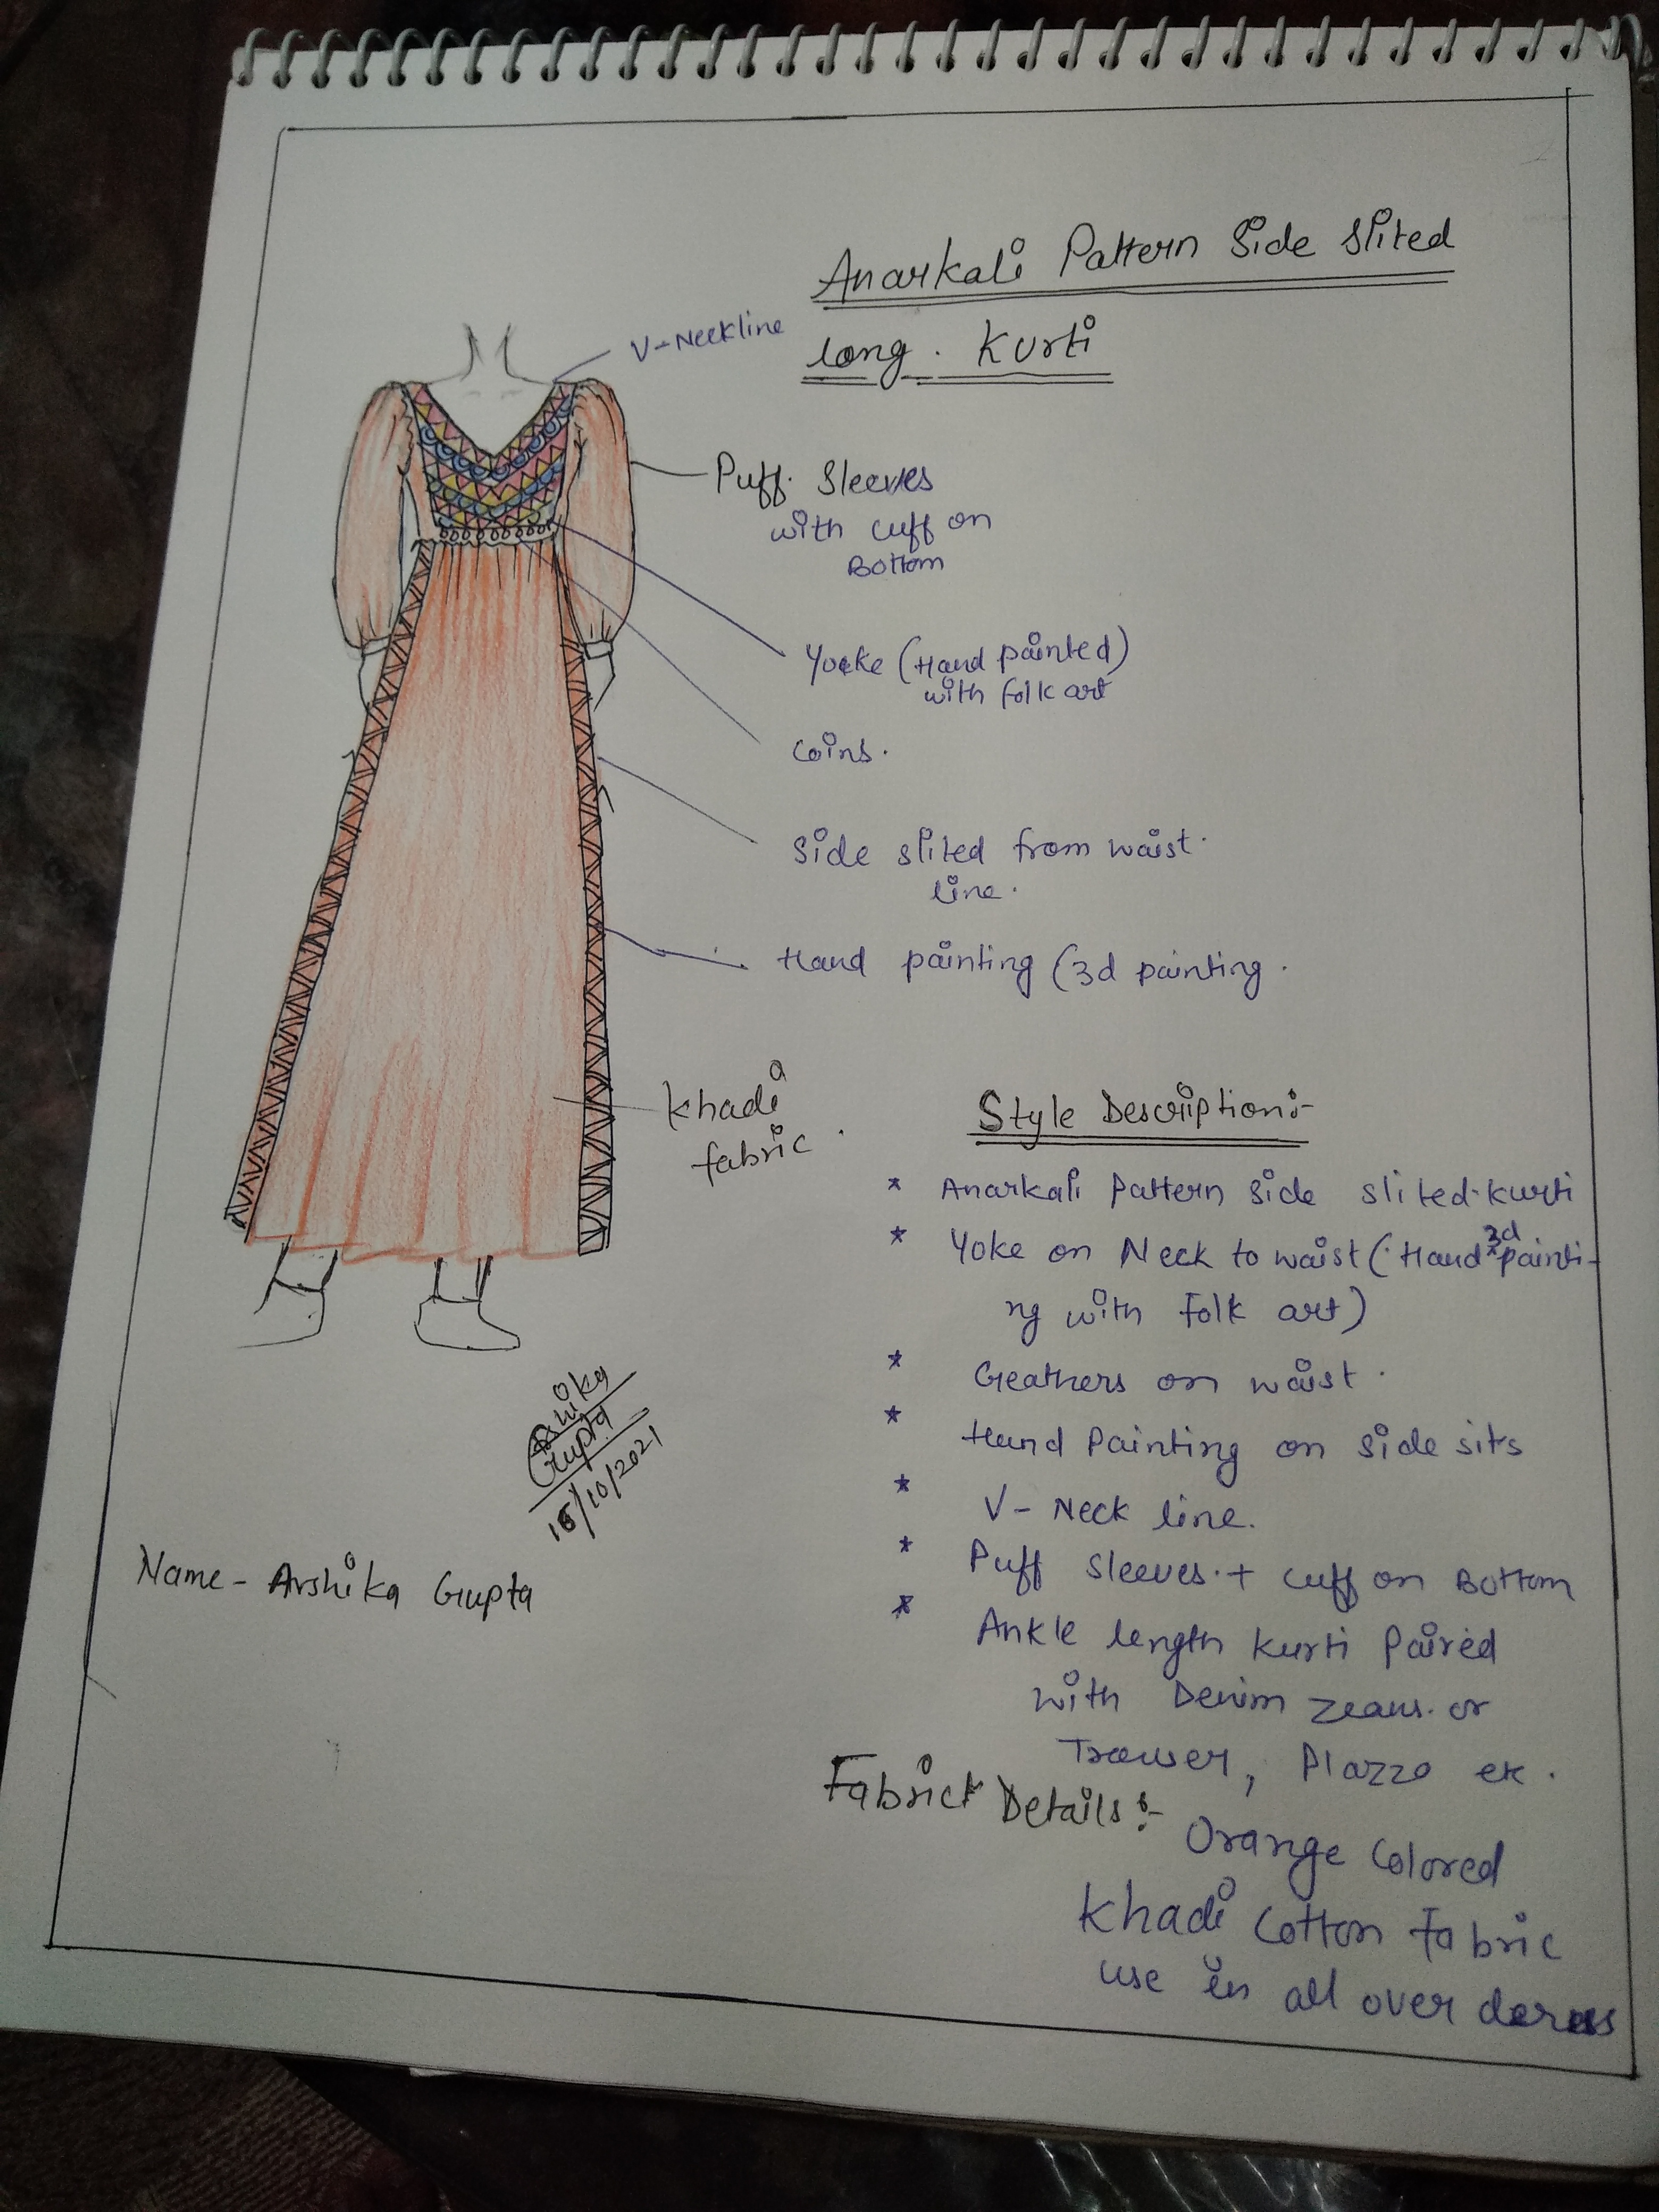 Anarkali Pattern Side Slited
long. Kurti
V-Neckline
Puff. Sleeves
with cuff on
Bottom
Yoeke (Hand painted)
with folk art
Coins.
Side slited from waist.
line.
Hand painting (3d painting.
Khadi
fabric.
Style Description:-
* Anarkali Pattern Side slited.kurti
* Yoke on Neck to waist (Hand 3d painti-
ng with Folk art)
* Geathers on waist.
* Hand Painting on side sits
* V- Neck line.
* Puff Sleeves.+ cuff on Bottom
* Ankle length kurti Paired
with Denim Zeans. or
Trowser, Plazzo etc.
Fabrict Details:-
Orange Colored
Khadi Cotton Fabric
use in all over
Arshika
Gupta
16/10/2021
Name- Arshika Gupta